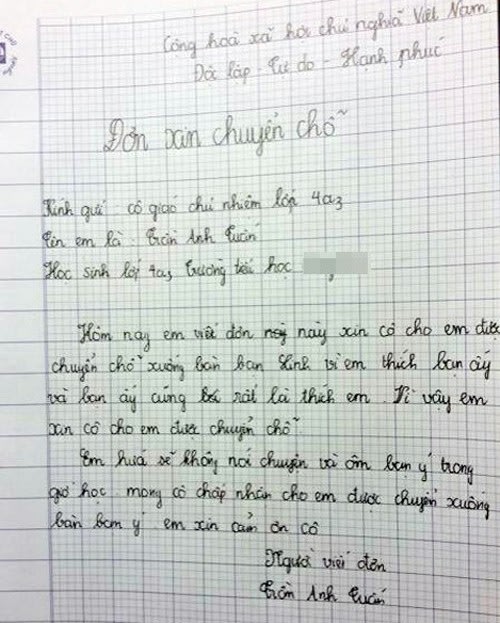 Công hoà xã hội chủ nghĩa Việt Nam
Độc lập - Tự do - Hạnh phúc
Đơn xin chuyển chỗ
Kính gửi cô giáo chủ nhiệm lớp 4a3
Tên em là: Trần Anh Tuấn
Học sinh lớp 4a3 trường tiểu học
Hôm nay em viết đơn này xin cô cho em được
chuyển chỗ xuống bàn bạn Linh vì em thích bạn ấy
và bạn ấy cũng rất là thích em. Vì vậy em
xin cô cho em được chuyển chỗ.
Em hứa sẽ không nói chuyện và ôm bạn ý trong
giờ học. mong cô chấp nhận cho em được chuyển xuống
bàn bạn ý. em xin cảm ơn cô
Người viết đơn
Trần Anh Tuấn